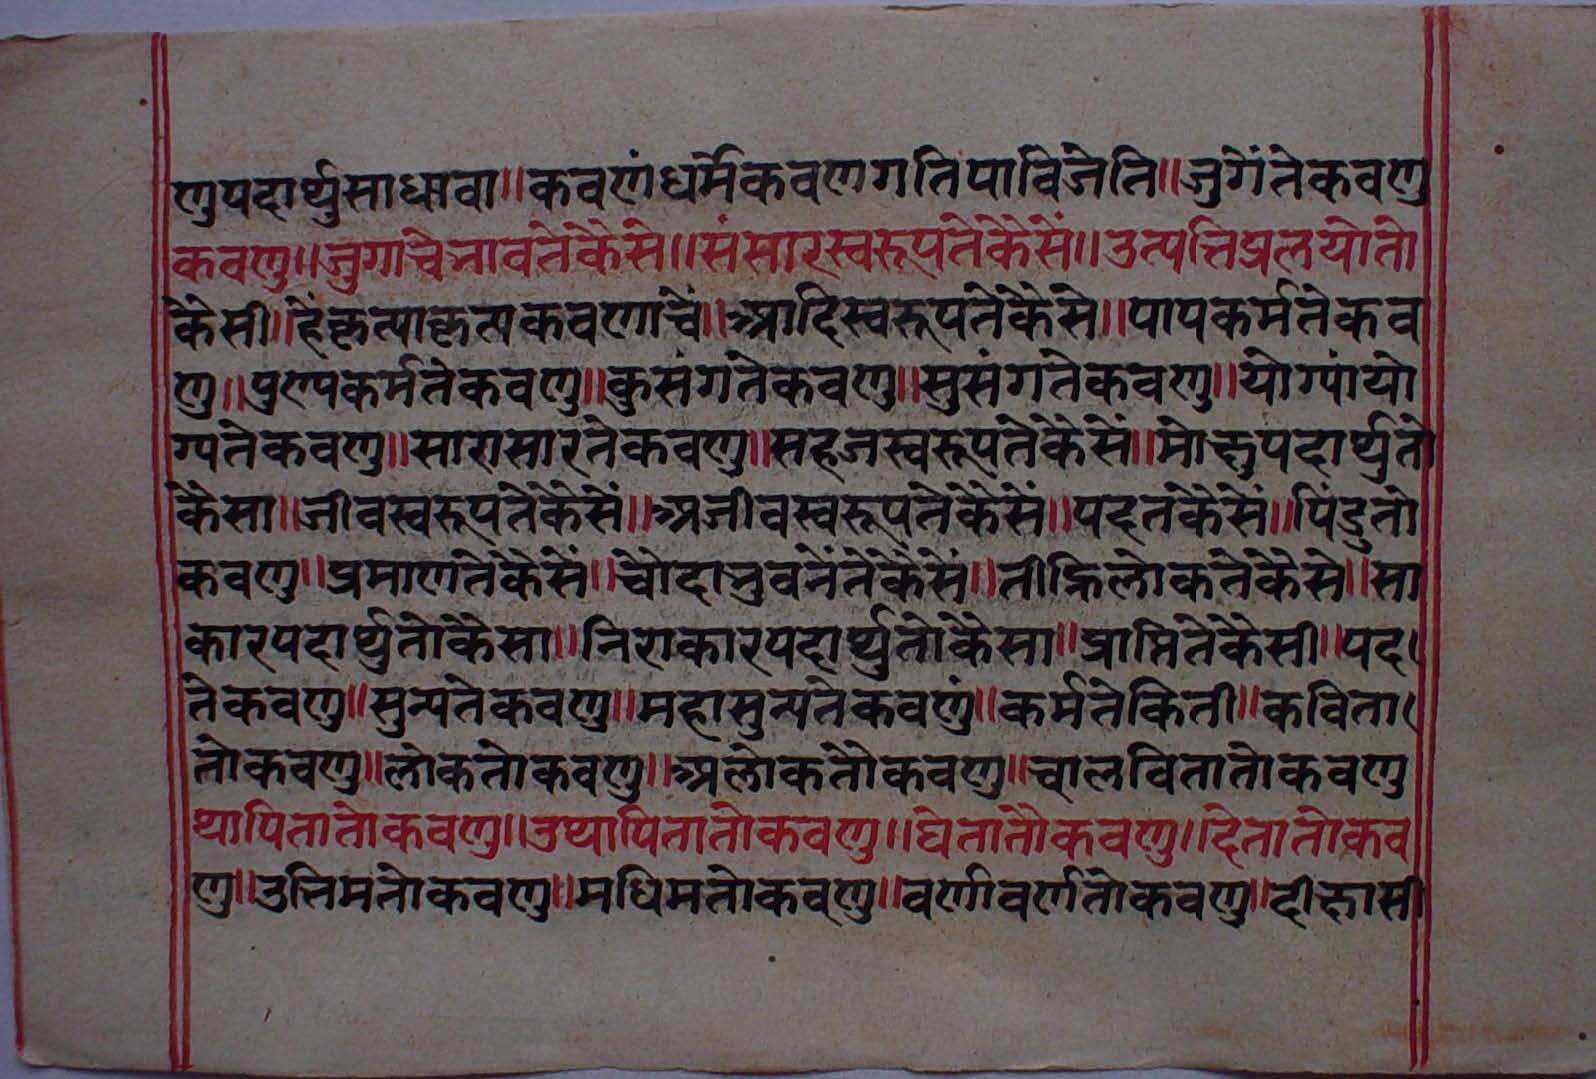 णुपदार्थुसाधावा॥कवणंधर्मेकवणगतिपाविजेति॥जुगेंतेकवणु
कवणु॥जुगाचैनावतेकैसे॥संसारस्वरूपतेकैसें॥उत्पत्तिप्रलयोतो
कैसी॥हेंकृत्याकृत्यकवणाचें॥आदिस्वरूपतेकैसे॥पापकर्मतेकव
णु॥पुण्यकर्मतेकवणु॥कुसंगतेकवणु॥सुसंगतेकवणु॥योग्यांयो
ग्यतेकवणु॥सारासारतेकवणु॥सहजस्वरूपतेकैसें॥मोक्षुपदार्थुतो
कैसा॥जीवस्वरूपतेकैसें॥अजीवस्वरूपतेकैसें॥पदतकैसें॥पिंडुतो
कवणु॥प्रमाणतेकैसें॥चौदाभुवनेंतेकैसें॥तीन्हिलोकतेकैसे॥सा
कारपदार्थुतोकैसा॥निराकारपदार्थुतोकैसा॥प्राप्तितेकैसी॥पद
तेकवणु॥सुन्यतेकवणु॥महासुन्यतेकवणुं॥कर्मतेकिती॥कविता
तोकवणु॥लोकतोकवणु॥अलोकतोकवणु॥चालवितातोकवणु
थापितातोकवणु॥उथापितातोकवणु॥घेतातोकवणु॥देतातोकव
णु॥उत्तिमतोकवणु॥मधिमतोकवणु॥वर्णावर्णतोकवणु॥दीक्षासी